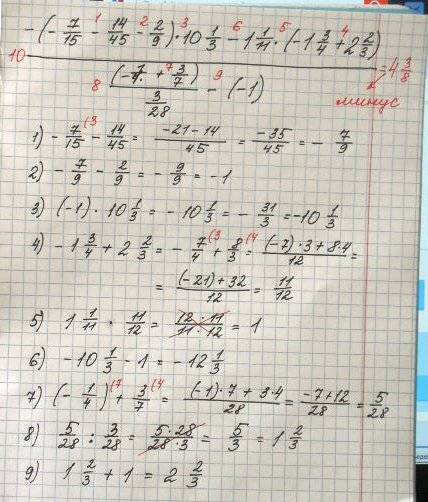 -(-7/15 - 14/45 - 2/9) · 10 1/3 - 1 1/11 · (-1 3/4 + 2 2/3)
1 2 3 6 5 4
10 = 4 3/8
8 (-1/4 + 3/7) / 3/28 - (-1)
7 9
минус
1) - 7/15 (3 - 14/45 = (-21-14)/45 = -35/45 = - 7/9
2) - 7/9 - 2/9 = - 9/9 = -1
3) (-1) · 10 1/3 = - 10 1/3 = - 31/3 = -10 1/3
4) - 1 3/4 + 2 2/3 = - 7/4 (3 + 8/3 (4 = ((-7)·3 + 8·4)/12 =
= ((-21) + 32)/12 = 11/12
5) 1 1/11 · 11/12 = (12·11)/(11·12) = 1
6) -10 1/3 - 1 = -12 1/3
7) (- 1/4) (7 + 3/7 (4 = ((-1)·7 + 3·4)/28 = (-7+12)/28 = 5/28
8) 5/28 : 3/28 = (5·28)/(28·3) = 5/3 = 1 2/3
9) 1 2/3 + 1 = 2 2/3